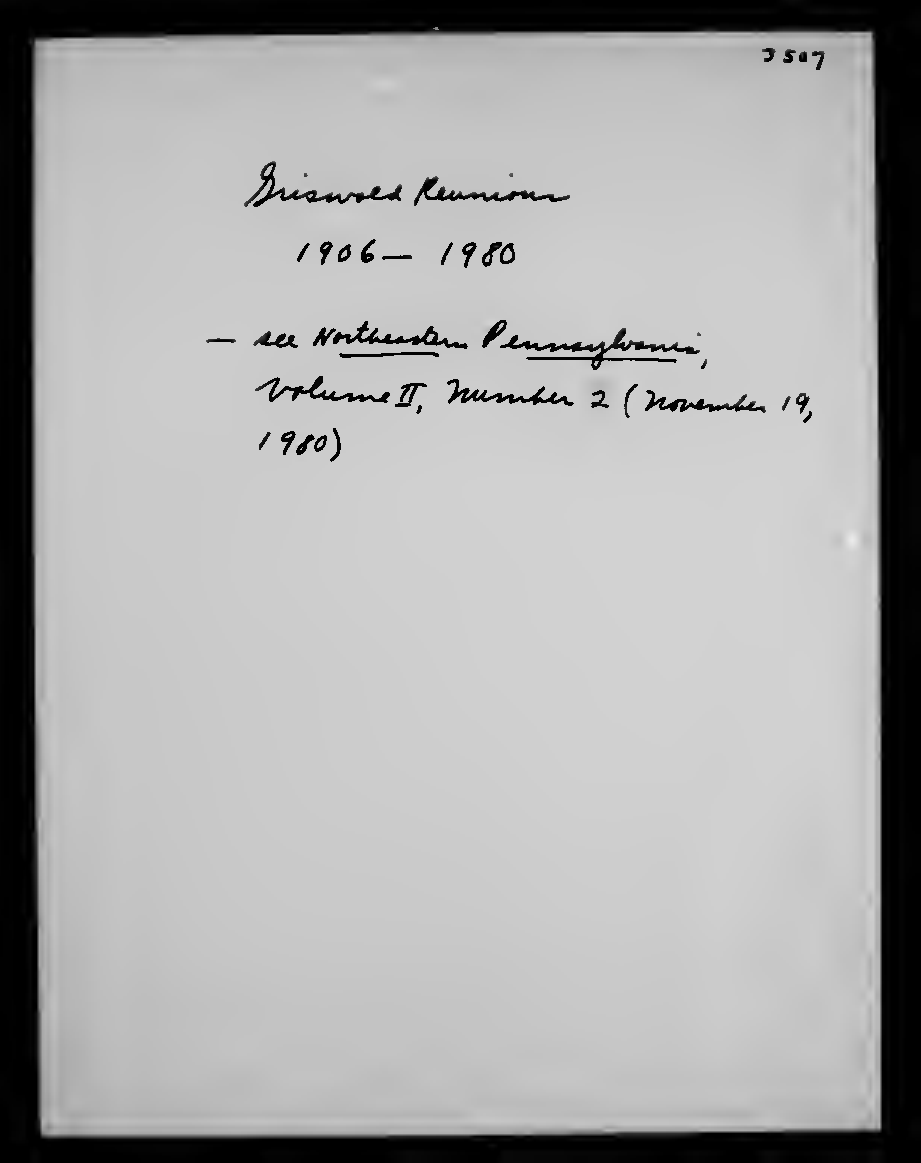 3507
Griswold Reunions
1906— 1980
— see Northeastern Pennsylvania,
Volume II, Number 2 (November 19,
1980)